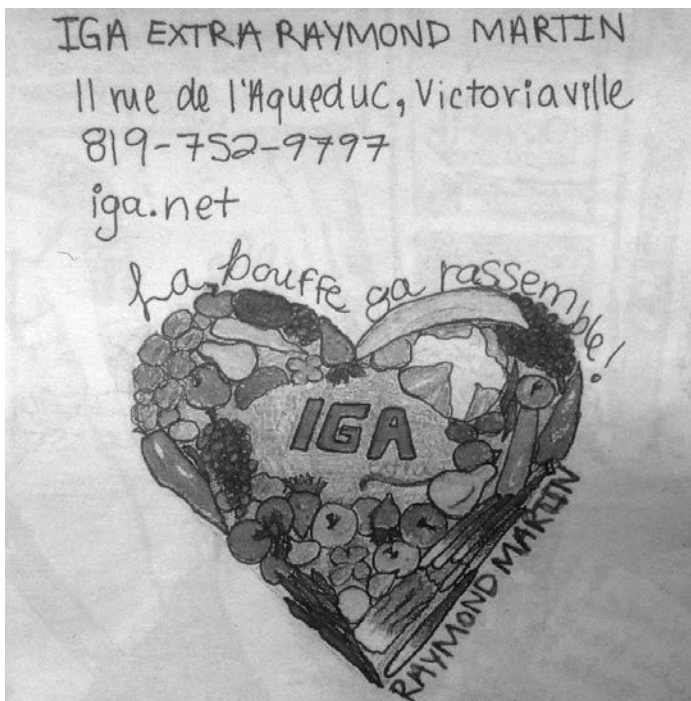 IGA EXTRA RAYMOND MARTIN
11 rue de l'Aqueduc, Victoriaville
819-752-9797
iga.net
La bouffe ça rassemble!
IGA
extra
RAYMOND MARTIN